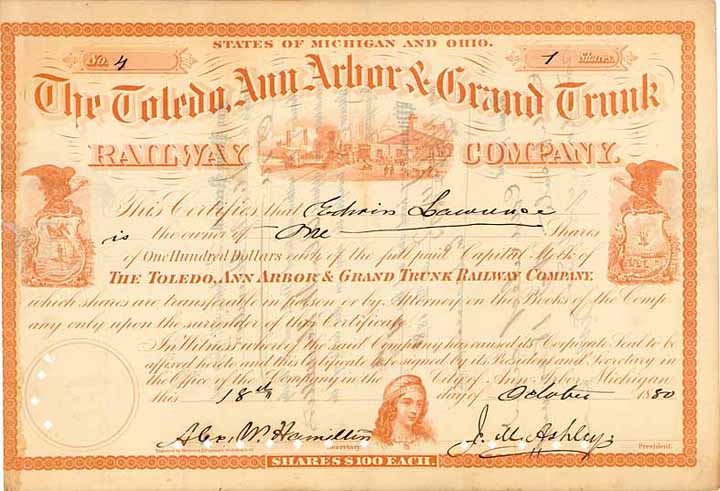 STATES OF MICHIGAN AND OHIO.
No. 4
1 Shares.
The Toledo, Ann Arbor & Grand Trunk
RAILWAY COMPANY.
This Certifies that Edwin Lawrence
is the owner of One Shares
of One Hundred Dollars each of the full paid Capital Stock of
THE TOLEDO, ANN ARBOR & GRAND TRUNK RAILWAY COMPANY.
which shares are transferable in person or by Attorney on the Books of the Comp
any only upon the surrender of this Certificate.
In Witness whereof the said Company has caused its Corporate Seal to be
affixed hereto and this Certificate to be signed by its President and Secretary in
the Office of the Company in the City of Ann Arbor, Michigan
this 18th day of October 1880
Alex. W. Hamilton J. M. Ashley
Secretary. President.
SHARES $100 EACH.